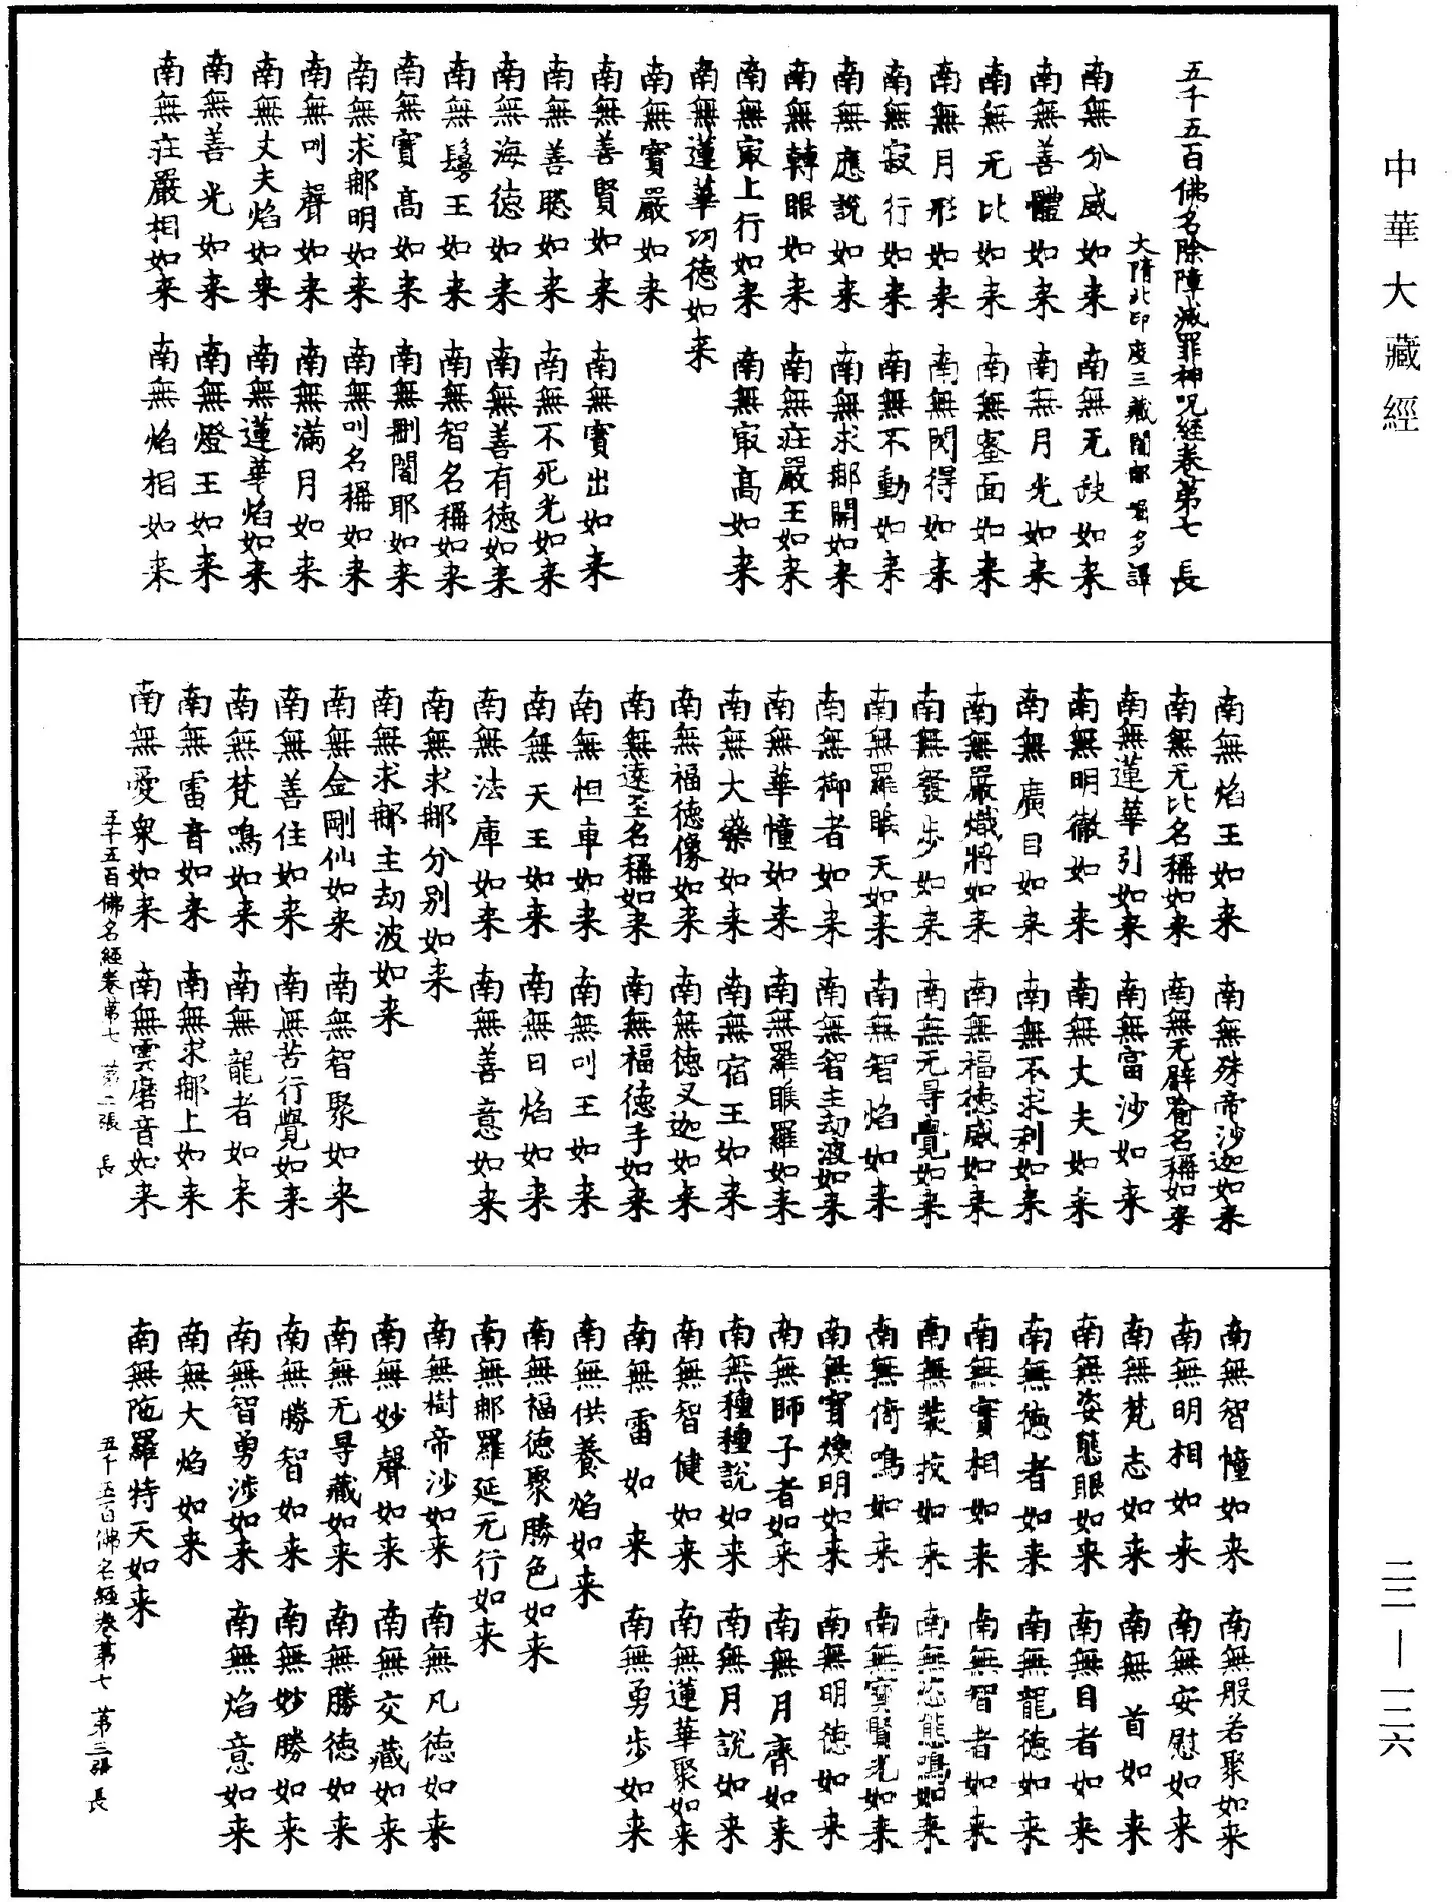 中華大藏經
五千五百佛名除障滅罪神呪經卷第七 長
大隋北印度三藏闍那崛多譯
南無分威如来 南無无缺如来
南無善體如来 南無月光如来
南無无比如来 南無蜜面如来
南無月形如来 南無閃得如来
南無寂行如来 南無不動如来
南無應說如来 南無求那開如来
南無轉眼如来 南無莊嚴王如来
南無㝡上行如来 南無㝡高如来
南無蓮華功德如来
南無寶嚴如来
南無善賢如来 南無實出如来
南無善聦如来 南無不死光如来
南無海德如来 南無善有德如来
南無鬘王如来 南無智名稱如来
南無寶高如来 南無删闍耶如来
南無求那明如来 南無叫名稱如来
南無叫聲如来 南無滿月如来
南無丈夫焰如来 南無蓮華焰如来
南無善光如来 南無燈王如来
南無莊嚴相如来 南無焰相如来
南無焰王如来 南無殊帝沙迦如来
南無无比名稱如来 南無无譬喻名稱如来
南無蓮華引如来 南無富沙如来
南無明徹如来 南無大夫如来
南無廣目如来 南無不求利如来
南無嚴熾將如来 南無福德威如来
南無發步如来 南無无㝵覺如来
南無羅睺天如来 南無智焰如来
南無御者如来 南無智主劫波如来
南無華幢如来 南無羅睺羅如来
南無大藥如来 南無宿王如来
南無福德像如来 南無德叉迦如来
南無遠至名稱如来 南無福德手如来
南無怛車如来 南無叫王如来
南無天王如来 南無日焰如来
南無法庫如来 南無善意如来
南無求那分别如来
南無求那主劫波如来
南無金剛仙如来 南無智聚如来
南無善住如来 南無苦行覺如来
南無梵鳴如来 南無龍者如来
南無雷音如来 南無求那上如来
南無愛泉如来 南無雲磨音如来
五千五百佛名經卷第七 第二張 長
南無智幢如来 南無般若聚如来
南無明相如来 南無安慰如来
南無梵志如来 南無首如来
南無姿態眼如来 南無目者如来
南無德者如来 南無龍德如来
南無實相如来 南無智者如来
南無裝挍如来 南無態鳴如来
南無倚鳴如来 南無寶賢光如来
南無寶煥明如来 南無明德如来
南無師子者如来 南無月齊如来
南無種種說如来 南無月說如来
南無智健如来 南無蓮華聚如来
南無雷如来 南無勇步如来
南無供養焰如来
南無福德聚勝色如来
南無那羅延无行如来
南無樹帝沙如来 南無凡德如来
南無妙聲如来 南無交藏如来
南無无㝵藏如来 南無勝德如来
南無勝智如来 南無妙勝如来
南無智勇涉如来 南無焰意如来
南無大焰如来
南無陁羅特天如来
五千五百佛名經卷第七 第三張 長
二二—一二六